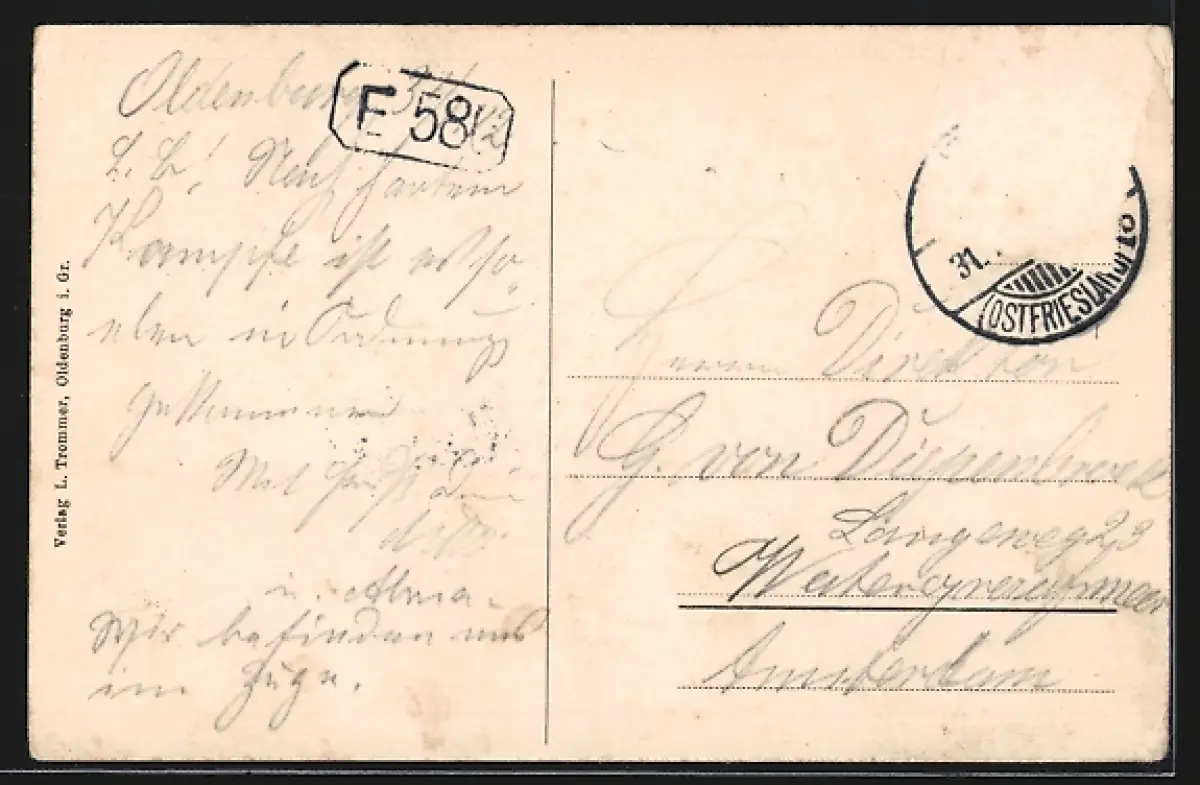 Oldenburg
F 58
L. B! Nach hartem
Kampfe ist es so
eben in Ordnung
gekommen
Mit Gruß Dein
u. Alma.
Wir befinden uns
im Zuge.
Verlag L. Trommer, Oldenburg i. Gr.
31.
(OSTFRIESLAND)
Herrn Direktor
G. von
Langeweg 23
Amsterdam